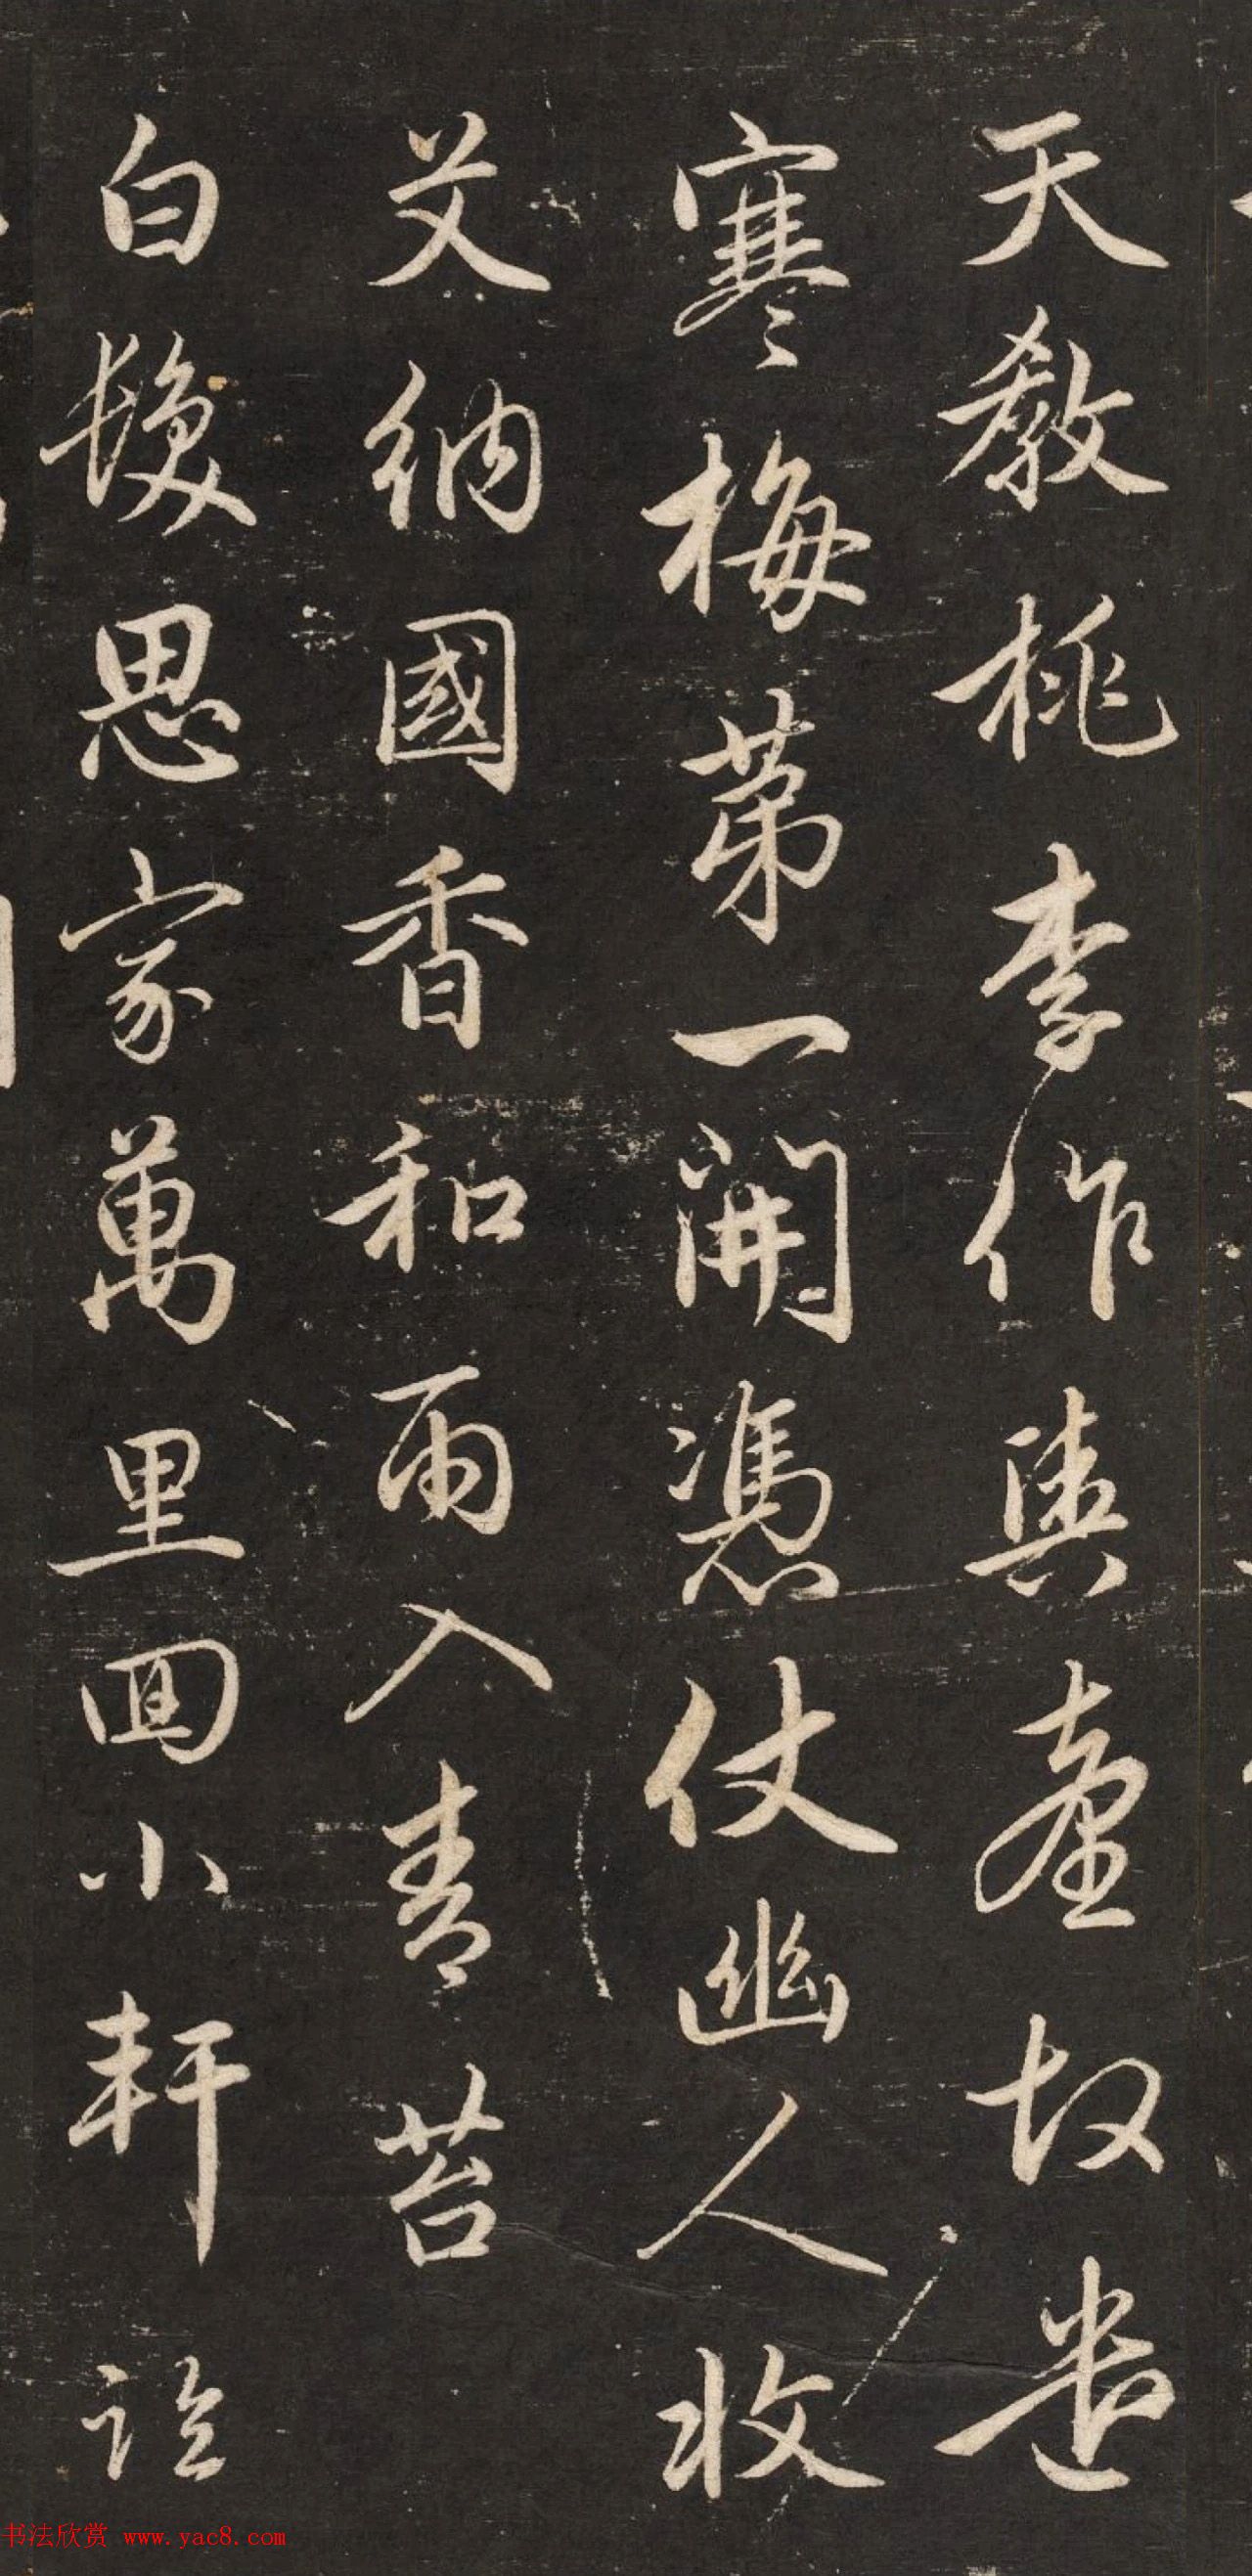 天教桃李作輿臺故遣
寒梅第一開憑仗幽人收
艾納國香和雨入青苔
白髮思家萬里回小軒臨
书法欣赏 www.yac8.com